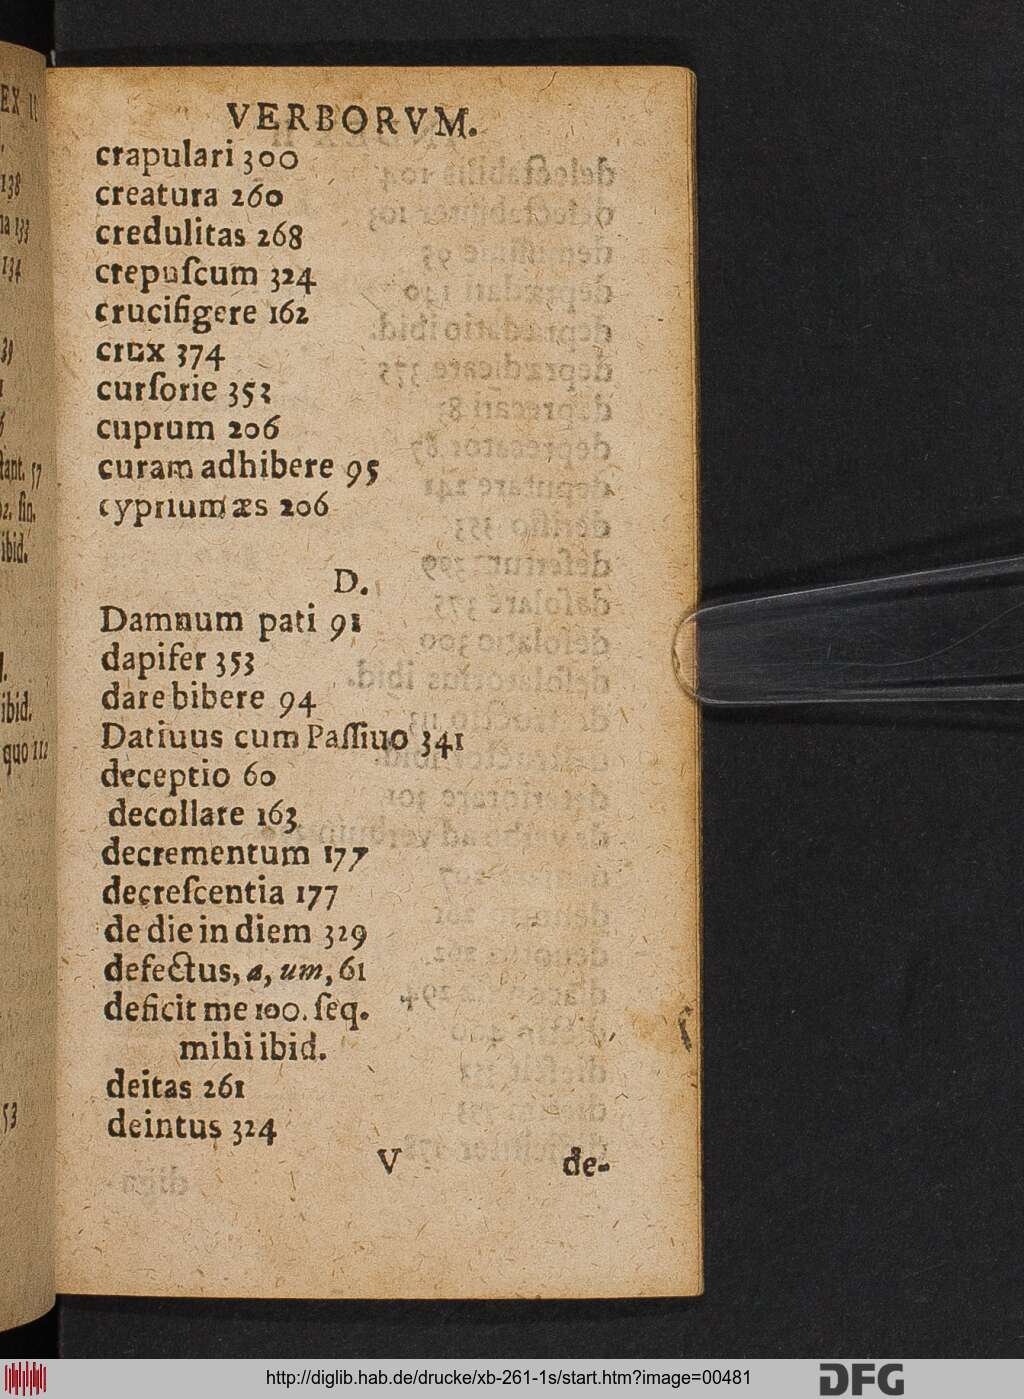 VERBORVM.
crapulari 300
creatura 260
credulitas 268
crepuſcum 324
crucifigere 162
crux 374
curſorie 353
cuprum 206
curam adhibere 95
cyprium æs 206
D.
Damnum pati 91
dapifer 353
dare bibere 94
Datiuus cum Paſſiuo 341
deceptio 60
decollare 163
decrementum 177
decreſcentia 177
de die in diem 329
defectus, a, um, 61
deficit me 100. ſeq.
mihi ibid.
deitas 261
deintus 324
V de-
EX II
138
na 133
134
39
tant. 57
ibid.
ibid.
quo 112
53
http://diglib.hab.de/drucke/xb-261-1s/start.htm?image=00481
DFG